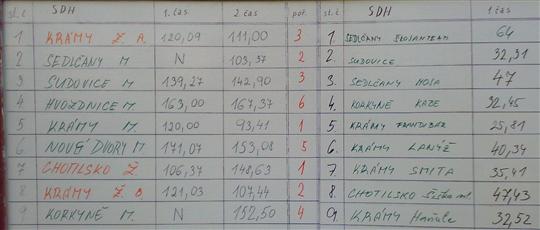 st. č SDH 1. čas 2. čas poř. st. č SDH 1. čas
1 KRÁMY Ž. A. 120,09 111,00 3 1. SEDLČANY 64
2 SEDLČANY M N 103,37 2 2. SUDOVICE 32,31
3 SUDOVICE M. 139,27 142,90 3 3. SEDLČANY HOSA 47
4 HVOZDNICE M. 163,00 167,37 6 4. KORKYNĚ KAZE 32,45
5 KRÁMY M. 120,00 93,41 1 5. KRÁMY 25,81
6 NOVÉ DVORY M 171,07 153,08 5 6. KRÁMY LANÝŽ 40,34
7 CHOTILSKO Ž 106,37 148,63 1 7. KRÁMY SMITA 35,41
8 KRÁMY Ž. B. 121,03 107,44 2 8. CHOTILSKO 47,43
9 KORKYNĚ M. N 152,50 4 9. KRÁMY Hanule 32,52